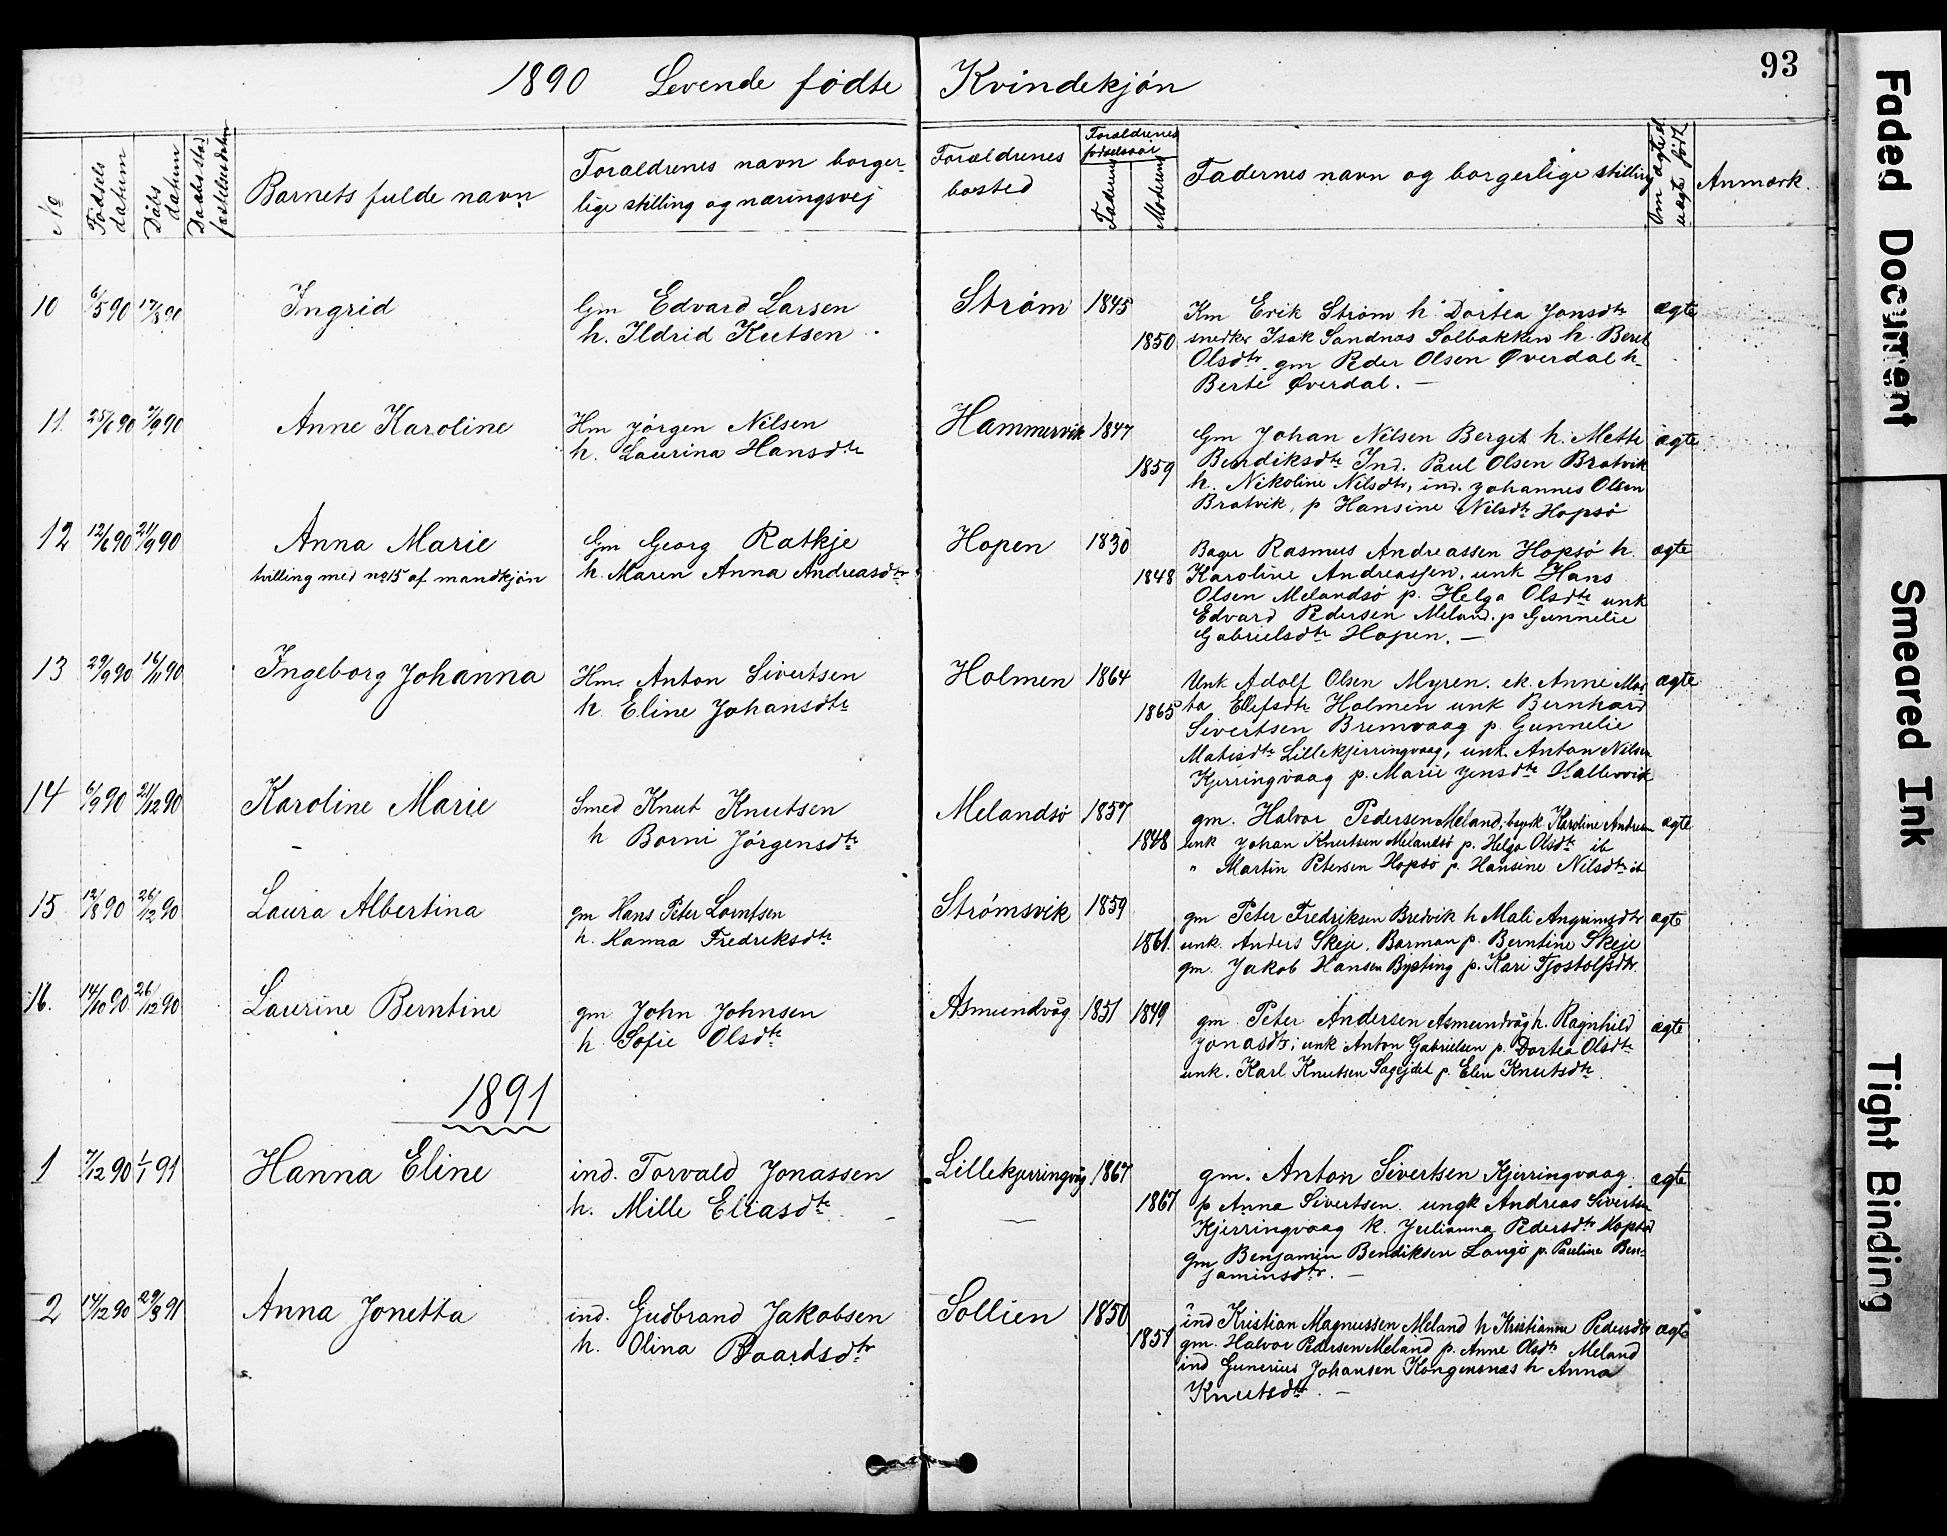 93
1890 Levende fødte Kvindekjøn
No
Fødsels datum
Døbs datum
Barnets fulde navn
Forældrenes navn borger-
lige stilling og næringsvej
Forældrenes
bosted
Forældrenes
fødselsaar
Faderens
Moderens
Fadernes navn og borgerlige stilling
Om ægte ed
uægte født
Anmærk.
10 6/5 90 17/8 90 Ingrid Gm Edvard Larsen Strøm 1845 Km Erik Strøm h. Dortea Jonsdtr ægte
h. Ildrid Knutsen 1850 snedker Isak Sandnæs Solbakken h. Beret
Olsdtr. gm Peder Olsen Øverdal h
Berte Øverdal. —
11 25/6 90 7/9 90 Anne Karoline Hm Jørgen Nilsen Hammervik 1847 Gm Johan Nilsen Berget h. Mette ægte
h. Laurina Hansdtr 1859 Bendiksdtr Ind. Paul Olsen Bratvik
h. Nikoline Nilsdtr, ind. Johannes Olsen
Bratvik, p Hansine Nilsdtr Hopsø
12 12/6 90 21/9 90 Anna Marie Gm Georg Ratkje Hopen 1830 Bager Rasmus Andreassen Hopsø h. ægte
tvilling med no 15 af mandkjøn h. Maren Anna Andreasdtr 1848 Karoline Andreassen, unk Hans
Olsen Melandsø p. Helga Olsdtr unk
Edvard Pedersen Meland. p Gunnelie
Gabrielsdtr Hopen. —
13 29/9 90 16/11 90 Ingeborg Johanna Hm. Anton Sivertsen Holmen 1864 Unk Adolf Olsen Myren. ek. Anne Mar ægte
h. Eline Johansdtr 1865 ta Ellefsdtr Holmen unk Bernhard
Sivertsen Bremvaag p. Gunnelie
Matisdtr Lillekjerringvaag, unk. Anton Nilsen
Kjerringvaag p. Marie Jensdtr Hallevvik
14 6/9 90 21/12 90 Karoline Marie Smed Knut Knutsen Melandsø 1857 gm. Halvor Pedersen Meland, Karoline ægte
h Borni Jørgensdtr 1848 unk Johan Knutsen Melandsø p. Helga Olsdtr ib
" Martin Petersen Hopsø p. Hansine Nilsdtr ib
15 12/8 90 26/12 90 Laura Albertina gm Hans Peter Lorntsen Strømsvik 1859 gm Peter Fredriksen Bredvik h Mali Angrimsdtr ægte
h. Hanna Fredreksdtr 1861. unk. Anders Skeje, Barman p. Berntine Skeje
gm. Jakob Hansen Bysting p. Kari Fjostolfsdtr
16. 14/10 90 26/12 90 Laurine Berntine gm John Johnsen Asmundvåg 1851 1849 gm Peter Andersen Asmundvåg h. Ragnhild ægte
h. Sofie Olsdtr Jonasdtr; unk Anton Gabrielsen p. Dortea Olsdtr
unk. Karl Knutsen p. Elen Knutsdtr.
1891
1 7/12 90 1/1 91 Hanna Eline ind. Torvald Jonassen Lillekjerringvåg 1867 gm. Anton Sivertsen Kjerringvaag ægte
h. Mille Eliasdtr — 1867 p Anna Sivertsen. ungk Andreas Sivertsen
Kjerringvaag k. Julianna Pedersdtr Hopsø
gm Benjamin Bendiksen Langø p. Pauline Ben-
jaminsdtr. —
2 14/12 90 29/3 91 Anna Jonetta ind. Gudbrand Jakobsen Sollien 1850 ind Kristian Magnussen Meland h Kristianne Pedersdtr ægte
h. Olina Baardsdtr 1851 gm. Halvor Pedersen Meland p. Anne Olsdtr Meland
ind Gunerius Johansen Kongensnæs h Anna
Knutsdtr. —
Faded Document
Smeared Ink
Tight Binding